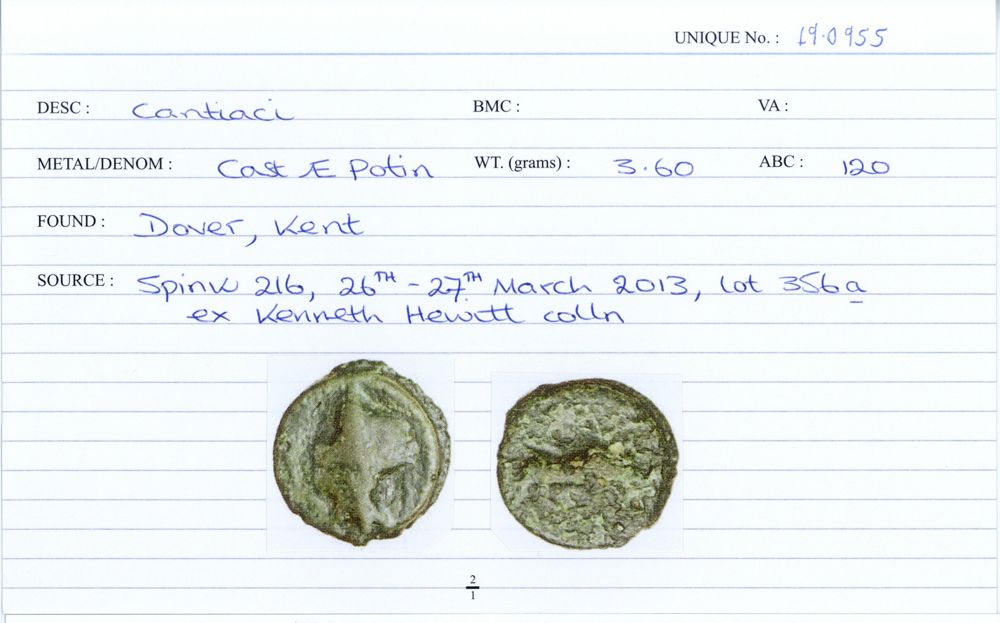 UNIQUE No. : 19.0955
DESC : Cantiaci BMC : VA :
METAL/DENOM : Cast Æ Potin WT. (grams) : 3.60 ABC : 120
FOUND : Dover, Kent
SOURCE : Spink 216, 26TH - 27TH March 2013, lot 356a
ex Kenneth Hewitt colln
2
1